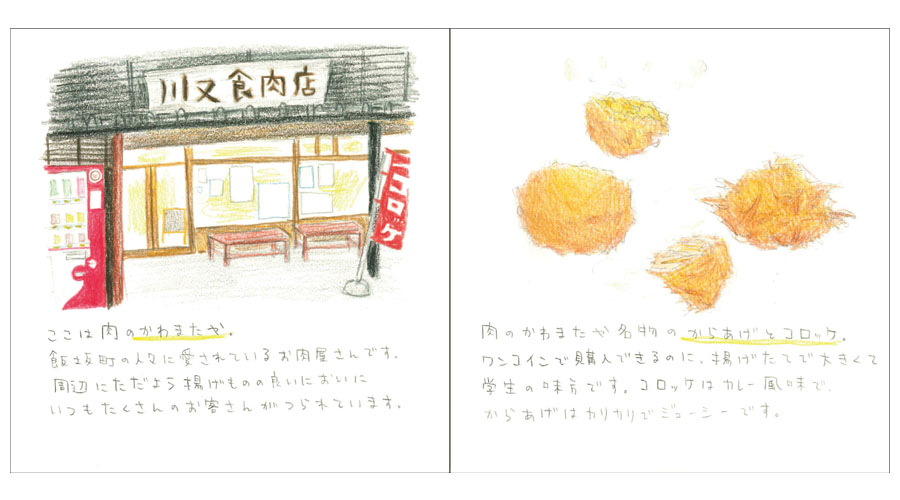 川又食肉店
コロッケ
ここは肉のかわまたや。
飯坂町の人々に愛されているお肉屋さんです。
周辺にただよう揚げものの良いにおいに
いつもたくさんのお客さんがつられています。
肉のかわまたや名物のからあげとコロッケ。
ワンコインで購入できるのに、揚げたてで大きくて
学生の味方です。コロッケはカレー風味で、
からあげはカリカリでジューシーです。